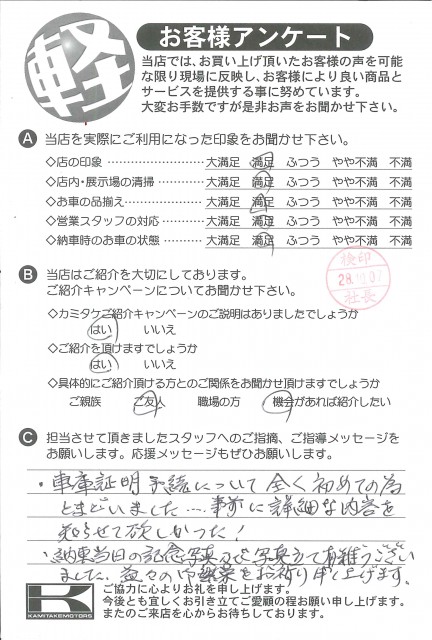 軽
お客様アンケート
当店では、お買い上げ頂いたお客様の声を可能
な限り現場に反映し、お客様により良い商品と
サービスを提供する事に努めています。
大変お手数ですが是非お声をお聞かせ下さい。
A 当店を実際にご利用になった印象をお聞かせ下さい。
◇店の印象 大満足 満足 ふつう やや不満 不満
◇店内・展示場の清掃 大満足 満足 ふつう やや不満 不満
◇お車の品揃え 大満足 満足 ふつう やや不満 不満
◇営業スタッフの対応 大満足 満足 ふつう やや不満 不満
◇納車時のお車の状態 大満足 満足 ふつう やや不満 不満
検印
社長
B 当店はご紹介を大切にしております。
ご紹介キャンペーンについてお聞かせ下さい。
◇カミタケご紹介キャンペーンのご説明はありましたでしょうか
はい いいえ
◇ご紹介を頂けますでしょうか
はい いいえ
◇具体的にご紹介頂ける方とのご関係をお聞かせ頂けますでしょうか
ご親族 ご友人 職場の方 機会があれば紹介したい
C 担当させて頂きましたスタッフへのご指摘、ご指導メッセージを
お願いします。応援メッセージもぜひお願いします。
・車庫証明手続について全く初めての為
とまどいました…事前に詳細な内容を
知らせて欲しかった！
・納車当日の記念写真及び写真立て有難うござい
ました。益々の御繁栄をお祈り申し上げます。
K
KAMITAKEMOTORS
ご協力に心よりお礼を申し上げます。
今後とも宜しくお引き立てご愛顧の程お願い申し上げます。
またのご来店を心からお待ちしております。